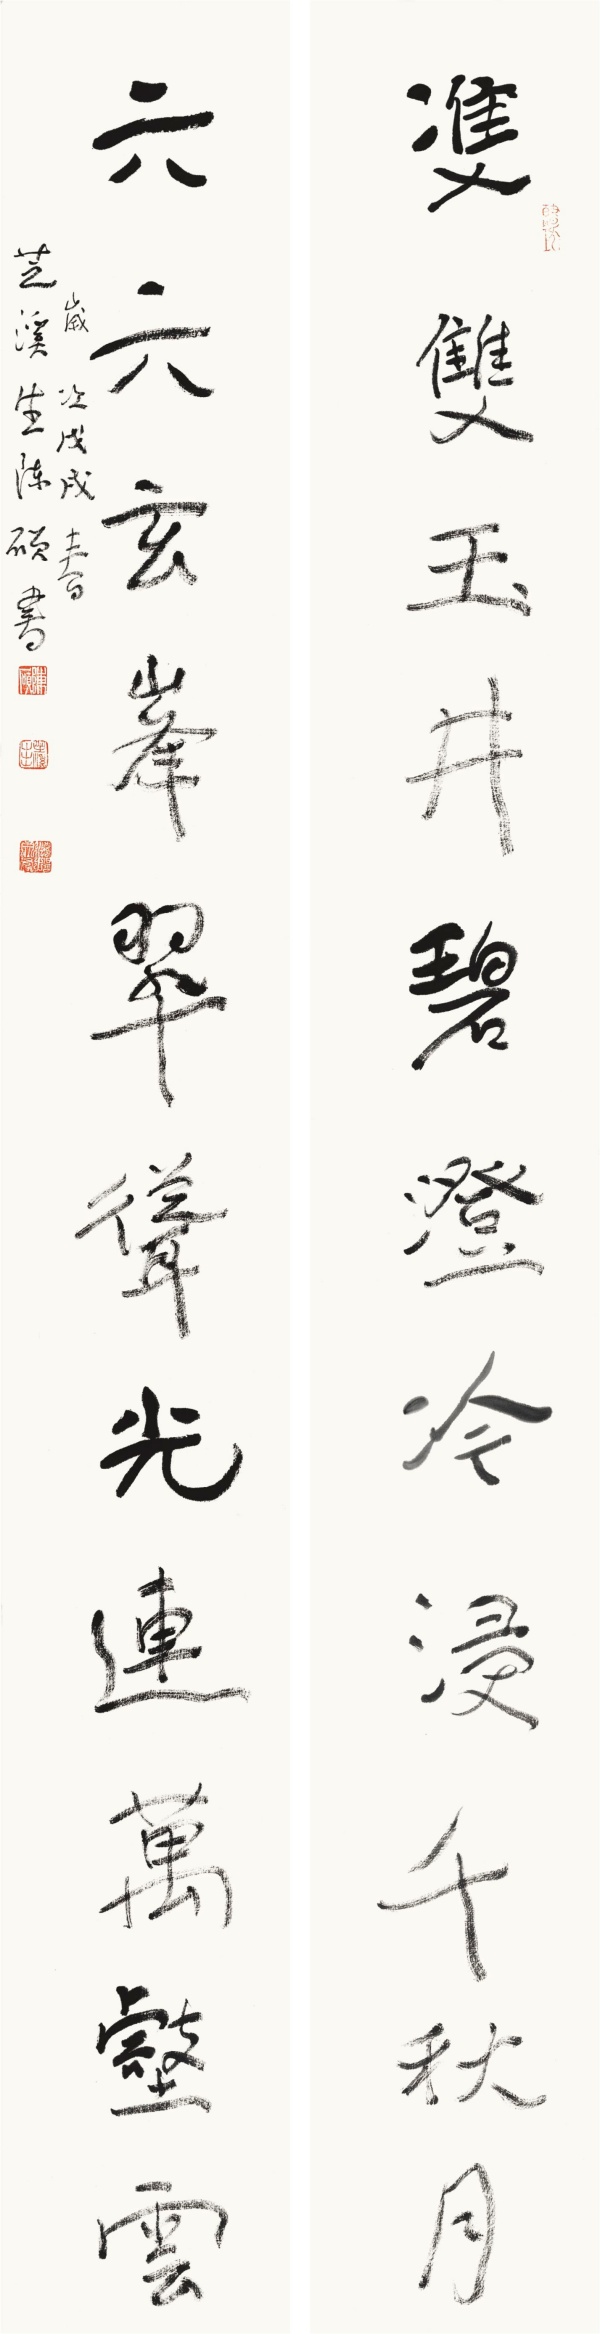 雙雙玉井碧澄冷浸千秋月
六六玄峯翠聳光連萬壑雲
歲次戊戌春
芝溪生陈碩書